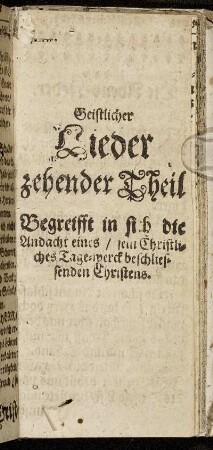 Geistlicher
Lieder
zehender Theil
Begreifft in sich die
Andacht eines / sein Christli-
ches Tagewerck beschlies-
senden Christens.